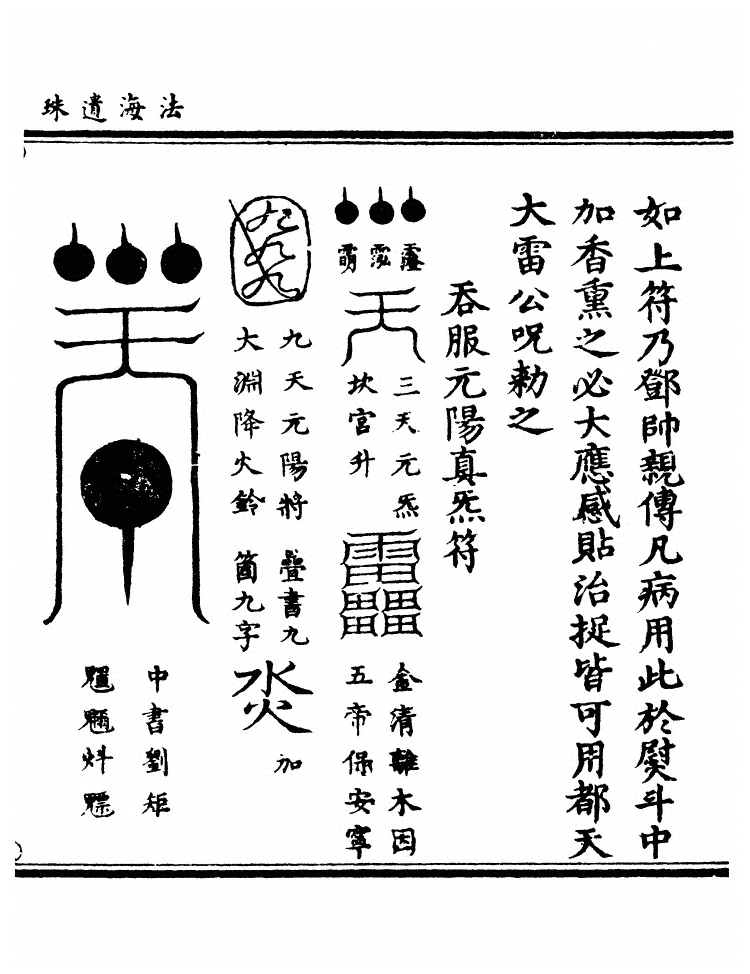 法海遺珠
如上符乃鄧帥親傳凡病用此於熨斗中
加香熏之必大應感貼治捉皆可用都天
大雷公呪勑之
吞服元陽真炁符
三天元炁
坎宮升
金清離木因
五帝保安寧
九天元陽將
大淵降火鈴
疊書九
箇九字
加
中書劉矩